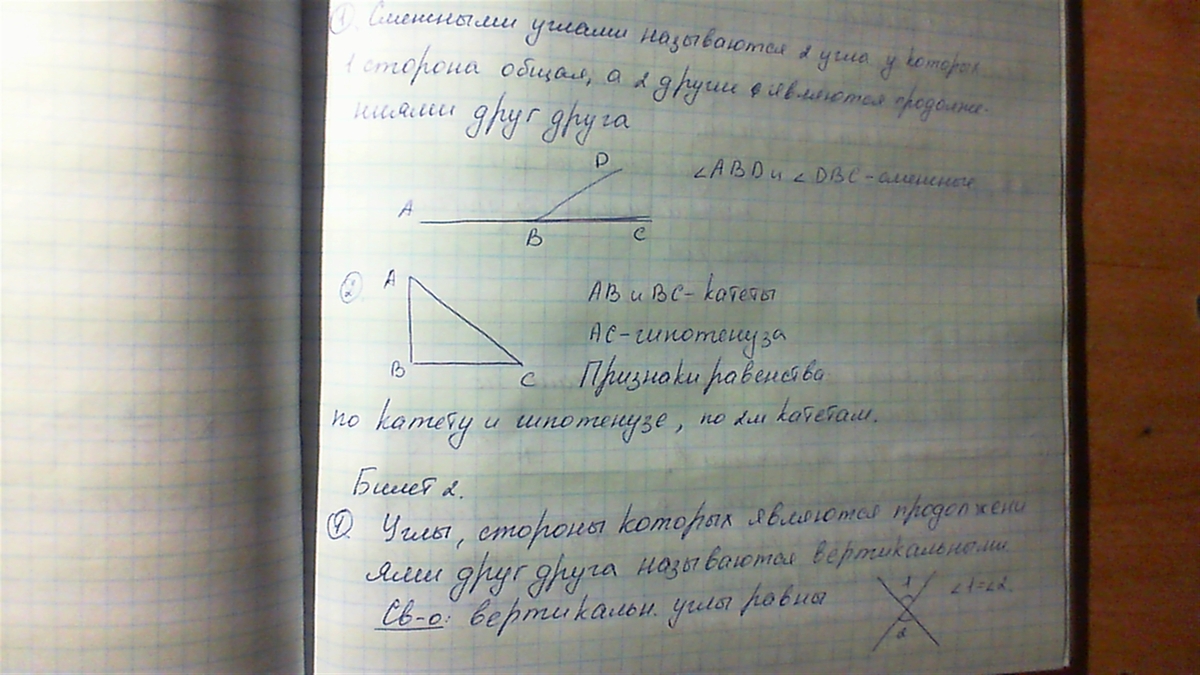 ① Смежными углами называются 2 угла у которых
1 сторона общая, а 2 други являются продолже-
ниями друг друга
D
∠ABD и ∠DBC - смежные
A
B
C
② A
AB и BC - катеты
AC - гипотенуза
B
C
Признаки равенства
по катету и гипотенузе, по 2м катетам.
Билет 2.
① Углы, стороны которых являются продолжени
ями друг друга называются вертикальными
Св-о: вертикальн. углы равны
1
2
∠1=∠2.